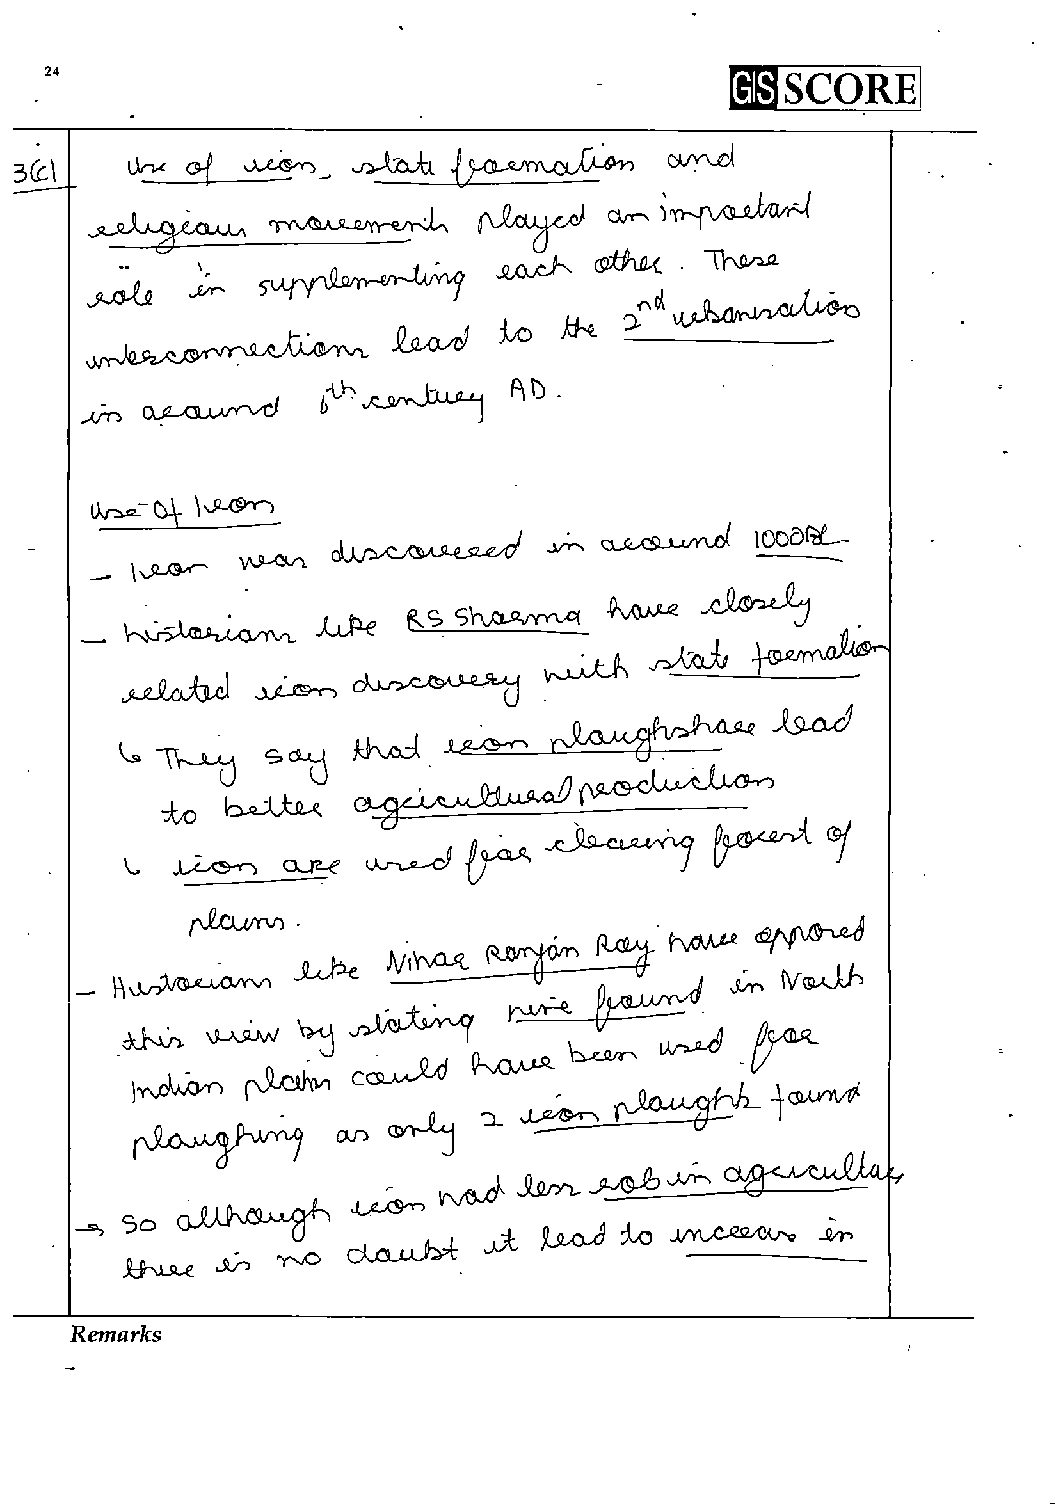 24
GIS SCORE
3(c) Use of iron, state formation and
religious movements played an important
role in supplementing each other. These
interconnections lead to the 2nd urbanisation
in around 6th century AD.
Use of Iron
- Iron was discovered in around 1000BC
- historians like RS Sharma have closely
related iron discovery with state formation
↳ They say that iron ploughshare lead
to better agricultural production
↳ iron axe used for clearing forest of
plains.
- Historians like Nihar Ranjan Ray have opposed
this view by stating found in North
Indian plain could have been used for
ploughing as only 2 iron ploughs found
→ So although iron had less rob in agricultur
there is no doubt it lead to increas in
Remarks